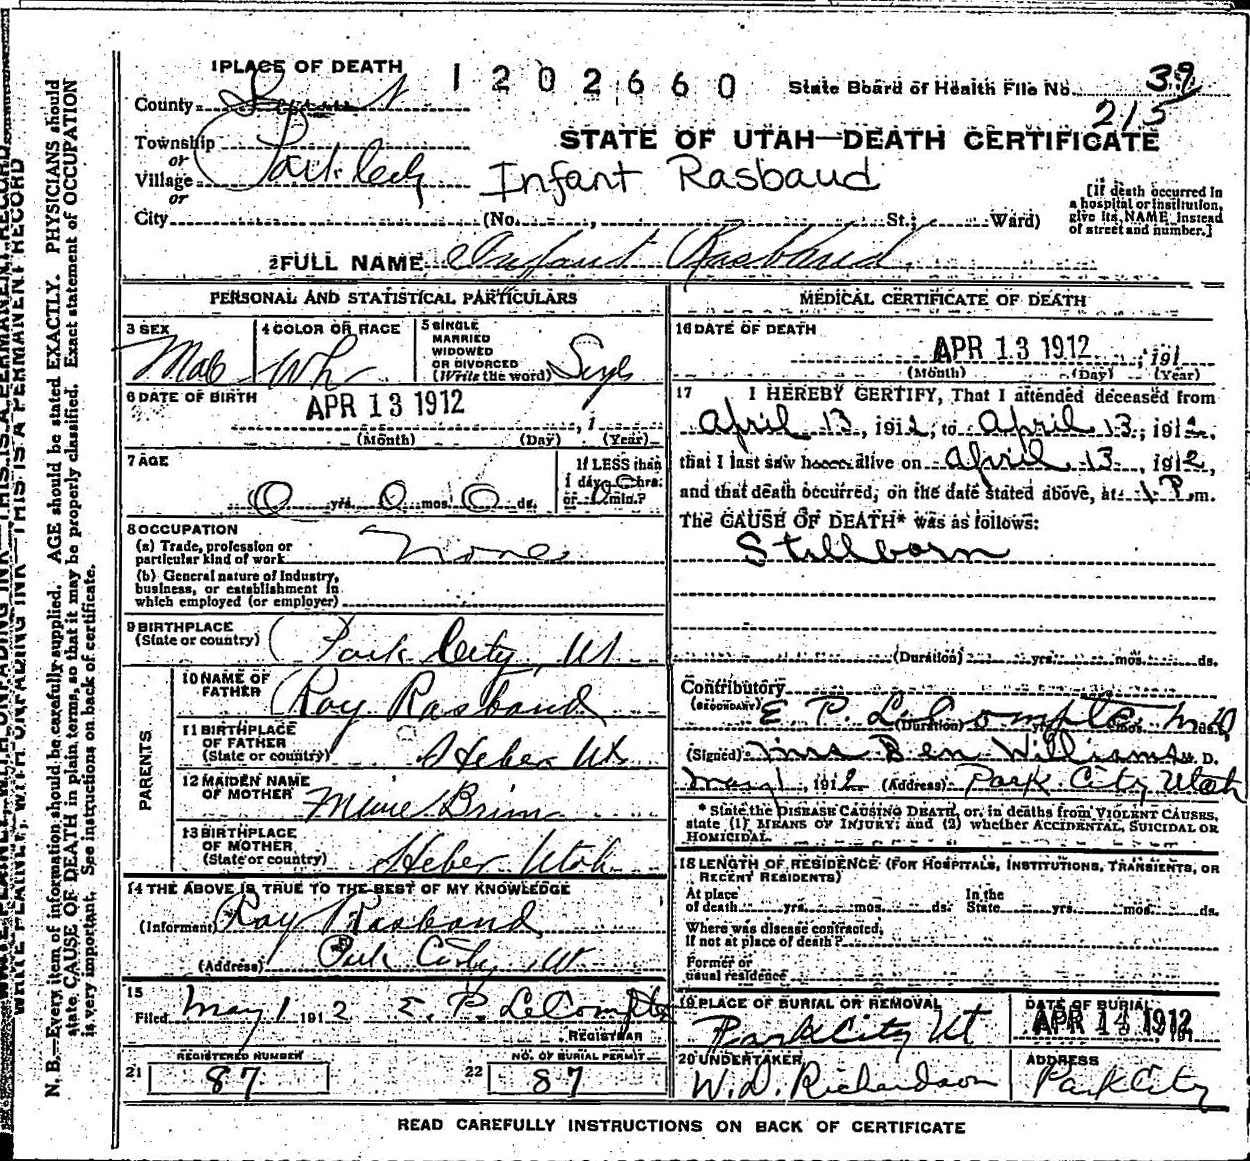 1 PLACE OF DEATH
1202660
State Board of Health File No. 39
215
County Summit
STATE OF UTAH—DEATH CERTIFICATE
Township
or
Village Park City
or
Infant Rasbaud
[If death occurred in a hospital or institution, give its NAME instead of street and number.]
City (No. , St.; Ward)
2 FULL NAME Infant Rasband
PERSONAL AND STATISTICAL PARTICULARS
3 SEX Male
4 COLOR OR RACE Wh
5 SINGLE MARRIED WIDOWED OR DIVORCED (Write the word)
6 DATE OF BIRTH
APR 13 1912 , 1
(Month) (Day) (Year)
7 AGE
0 yrs. 0 mos. 0 ds.
If LESS than
1 day 0 hrs.
or 0 min.?
8 OCCUPATION
(a) Trade, profession or particular kind of work None
(b) General nature of Industry, business, or establishment in which employed (or employer)
9 BIRTHPLACE
(State or country) Park City, Ut
PARENTS
10 NAME OF FATHER Roy Rasband
11 BIRTHPLACE OF FATHER (State or country) Heber Ut
12 MAIDEN NAME OF MOTHER Brim
13 BIRTHPLACE OF MOTHER (State or country) Heber Utah
14 THE ABOVE IS TRUE TO THE BEST OF MY KNOWLEDGE
(Informant) Roy Rasband
(Address) Park City, Ut
15
Filed May 1 1912 E. P. LeCompte
REGISTRAR
21 REGISTERED NUMBER 87
22 NO. OF BURIAL PERMIT 87
MEDICAL CERTIFICATE OF DEATH
16 DATE OF DEATH
APR 13 1912, 191
(Month) (Day) (Year)
17 I HEREBY CERTIFY, That I attended deceased from
April 13, 1912, to April 13, 1912,
that I last saw h alive on April 13, 1912,
and that death occurred, on the date stated above, at 1 P.m.
The CAUSE OF DEATH* was as follows:
Stillborn
(Duration) yrs. mos. ds.
Contributory
(SECONDARY) E. P. LeCompte M.D
(Duration) mos. ds.
(Signed) Mrs Ben Williams M. D.
May 1, 1912 (Address) Park City Utah
* State the DISEASE CAUSING DEATH, or, in deaths from VIOLENT CAUSES, state (1) MEANS OF INJURY; and (2) whether ACCIDENTAL, SUICIDAL OR HOMICIDAL.
18 LENGTH OF RESIDENCE (FOR HOSPITALS, INSTITUTIONS, TRANSIENTS, OR RECENT RESIDENTS)
At place of death yrs. mos. ds. In the State yrs. mos. ds.
Where was disease contracted, if not at place of death?
Former or usual residence
19 PLACE OF BURIAL OR REMOVAL Park City Ut
DATE OF BURIAL APR 14 1912, 191
20 UNDERTAKER W. D. Richardson
ADDRESS Park City
READ CAREFULLY INSTRUCTIONS ON BACK OF CERTIFICATE
WRITE PLAINLY, WITH UNFADING INK—THIS IS A PERMANENT RECORD
N. B.—Every item of information should be carefully supplied. AGE should be stated EXACTLY. PHYSICIANS should
state CAUSE OF DEATH in plain terms, so that it may be properly classified. Exact statement of OCCUPATION
is very important. See instructions on back of certificate.